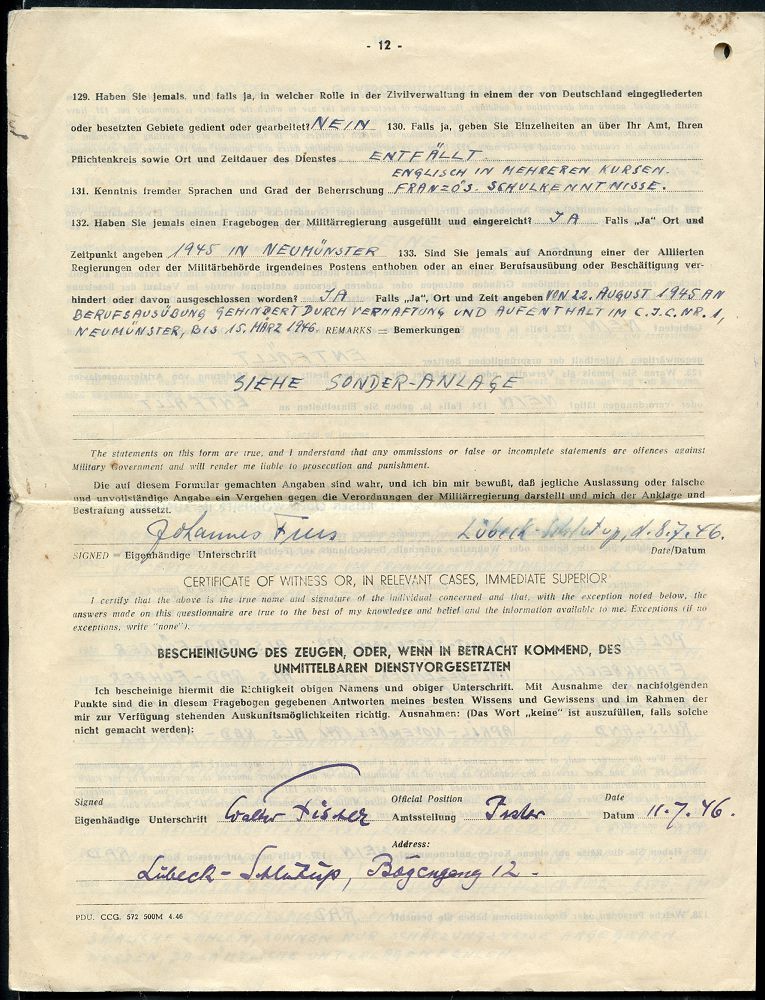 - 12 -
129. Haben Sie jemals, und falls ja, in welcher Rolle in der Zivilverwaltung in einem der von Deutschland eingegliederten
oder besetzten Gebiete gedient oder gearbeitet? NEIN 130. Falls ja, geben Sie Einzelheiten an über Ihr Amt, Ihren
Pflichtenkreis sowie Ort und Zeitdauer des Dienstes ENTFÄLLT
ENGLISCH IN MEHREREN KURSEN.
131. Kenntnis fremder Sprachen und Grad der Beherrschung FRANZÖS. SCHULKENNTNISSE.
132. Haben Sie jemals einen Fragebogen der Militärregierung ausgefüllt und eingereicht? JA Falls „Ja" Ort und
Zeitpunkt angeben 1945 IN NEUMÜNSTER 133. Sind Sie jemals auf Anordnung einer der Alliierten
Regierungen oder der Militärbehörde irgendeines Postens enthoben oder an einer Berufsausübung oder Beschäftigung ver-
hindert oder davon ausgeschlossen worden? JA Falls „Ja", Ort und Zeit angeben VON 22. AUGUST 1945 AN
BERUFSAUSÜBUNG GEHINDERT DURCH VERHAFTUNG UND AUFENTHALT IM C.I.C. NR. 1,
NEUMÜNSTER, BIS 15. MÄRZ 1946. REMARKS = Bemerkungen
SIEHE SONDER-ANLAGE
The statements on this form are true, and I understand that any ommissions or false or incomplete statements are offences against
Military Government and will render me liable to prosecution and punishment.
Die auf diesem Formular gemachten Angaben sind wahr, und ich bin mir bewußt, daß jegliche Auslassung oder falsche
und unvollständige Angabe ein Vergehen gegen die Verordnungen der Militärregierung darstellt und mich der Anklage und
Bestrafung aussetzt.
Johannes Lübeck-Schlutup, d. 8.7.46.
SIGNED = Eigenhändige Unterschrift Date/Datum
CERTIFICATE OF WITNESS OR, IN RELEVANT CASES, IMMEDIATE SUPERIOR
I certify that the above is the true name and signature of the individual concerned and that, with the exception noted below, the
answers made on this questionnaire are true to the best of my knowledge and belief and the information available to me. Exceptions (if no
exceptions, write "none").
BESCHEINIGUNG DES ZEUGEN, ODER, WENN IN BETRACHT KOMMEND, DES
UNMITTELBAREN DIENSTVORGESETZTEN
Ich bescheinige hiermit die Richtigkeit obigen Namens und obiger Unterschrift. Mit Ausnahme der nachfolgenden
Punkte sind die in diesem Fragebogen gegebenen Antworten meines besten Wissens und Gewissens und im Rahmen der
mir zur Verfügung stehenden Auskunftsmöglichkeiten richtig. Ausnahmen: (Das Wort „keine" ist auszufüllen, falls solche
nicht gemacht werden):
Signed Official Position Date
Eigenhändige Unterschrift Walter Fischer Amtsstellung Pastor Datum 11.7.46.
Address:
Lübeck-Schlutup, 12 -
PDU. CCG. 572 500M 4.46